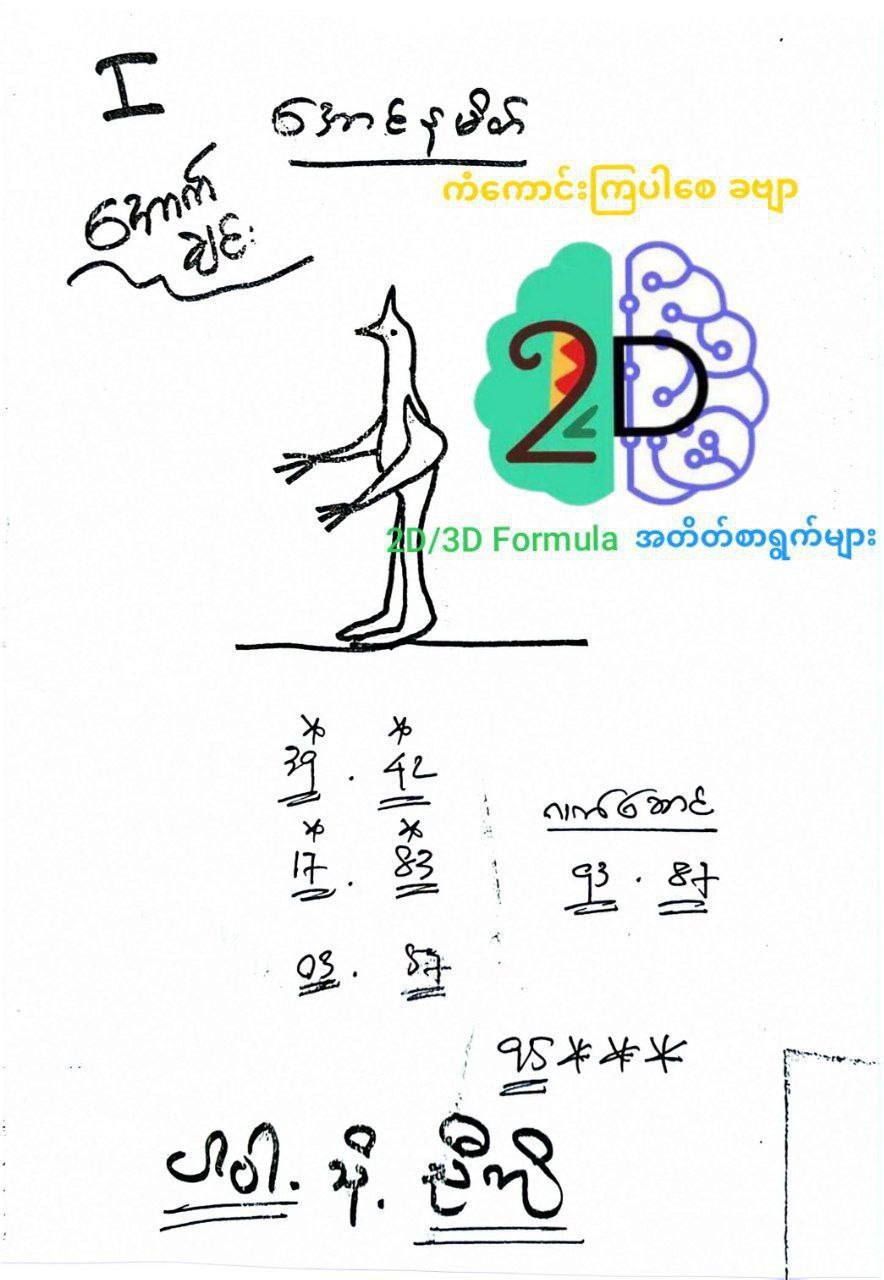 I
အောင်နမိတ်
အောက်
ချင်း
ကံကောင်းကြပါစေ ခဗျာ
2D
2D/3D Formula အတိတ်စာရွက်များ
39 . 42
17 . 83
03 . 87
လက်ဆောင်
93 . 87
95 ***